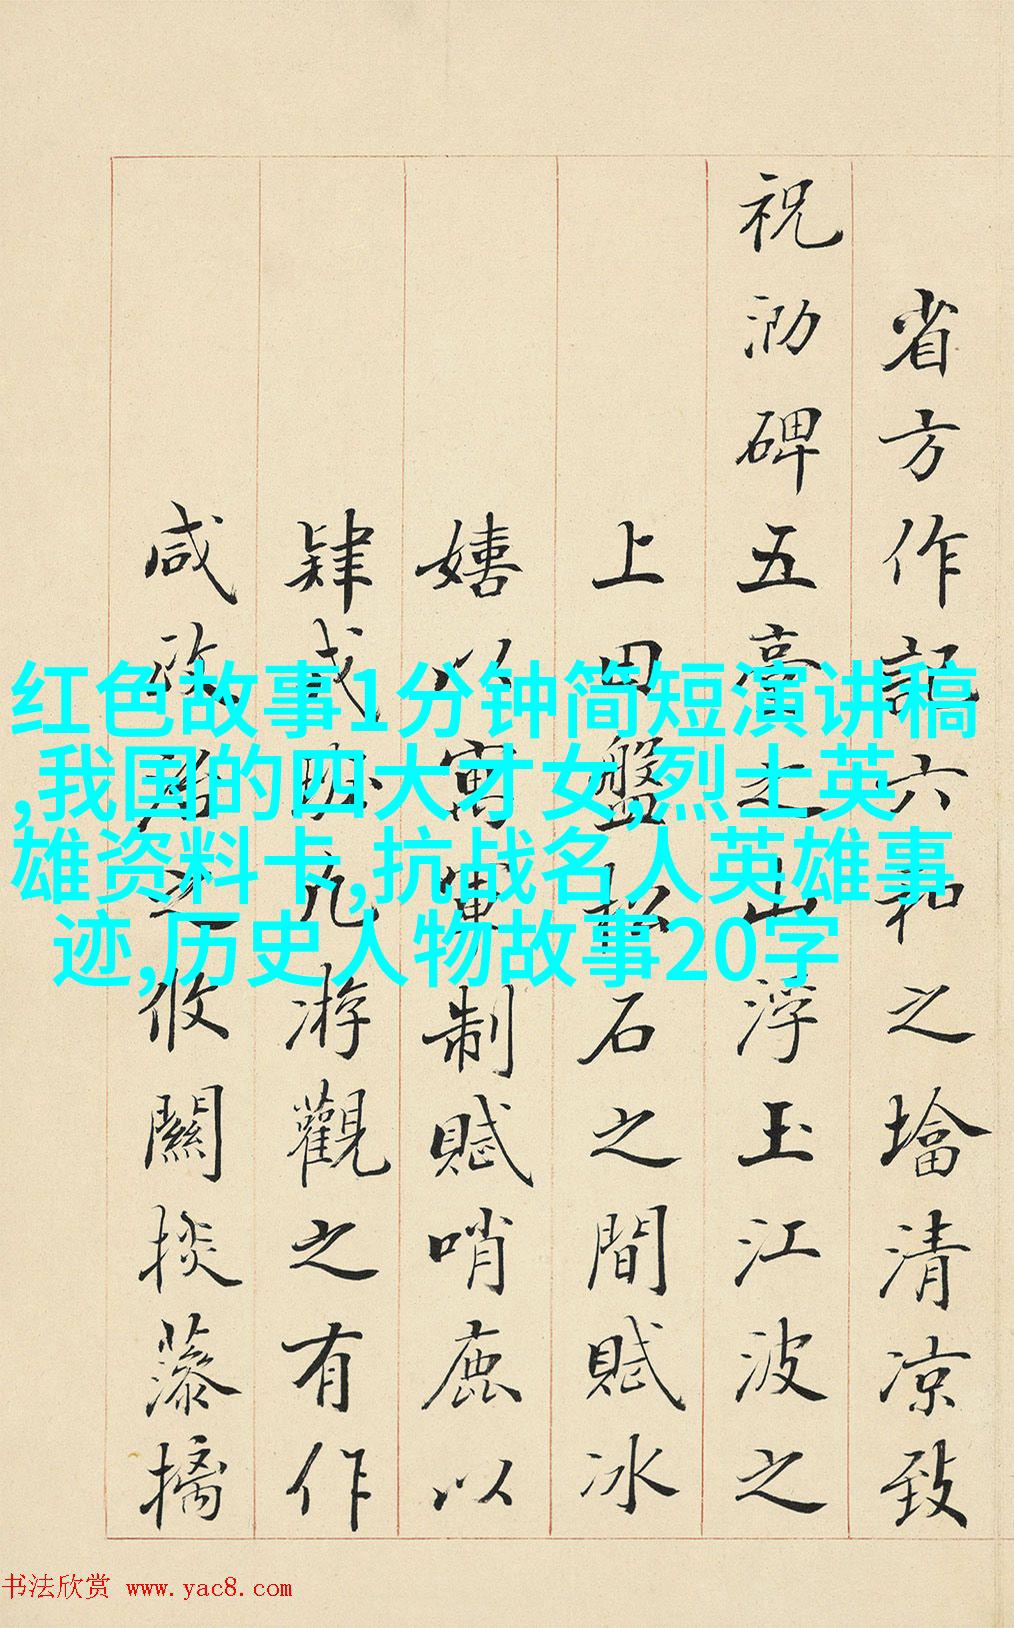 省方作記六和之墖清凉致
祝泐碑五臺之山浮玉江波之
上田盤松石之間賦冰
嬉以寓軍制賦哨鹿以
肆武九游觀之有作
咸之攸關掞藻摛
红色故事1分钟简短演讲稿
,我国的四大才女,烈士英
雄资料卡,抗战名人英雄事
迹,历史人物故事20字
书法欣赏 www.yac8.com